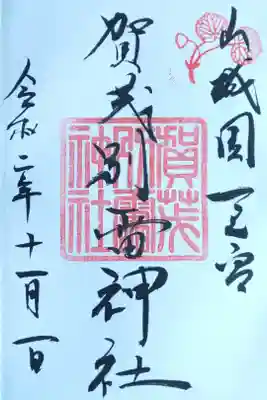 山城國一之宮
賀茂別雷神社
賀茂別雷神社
令和二年十一月一日